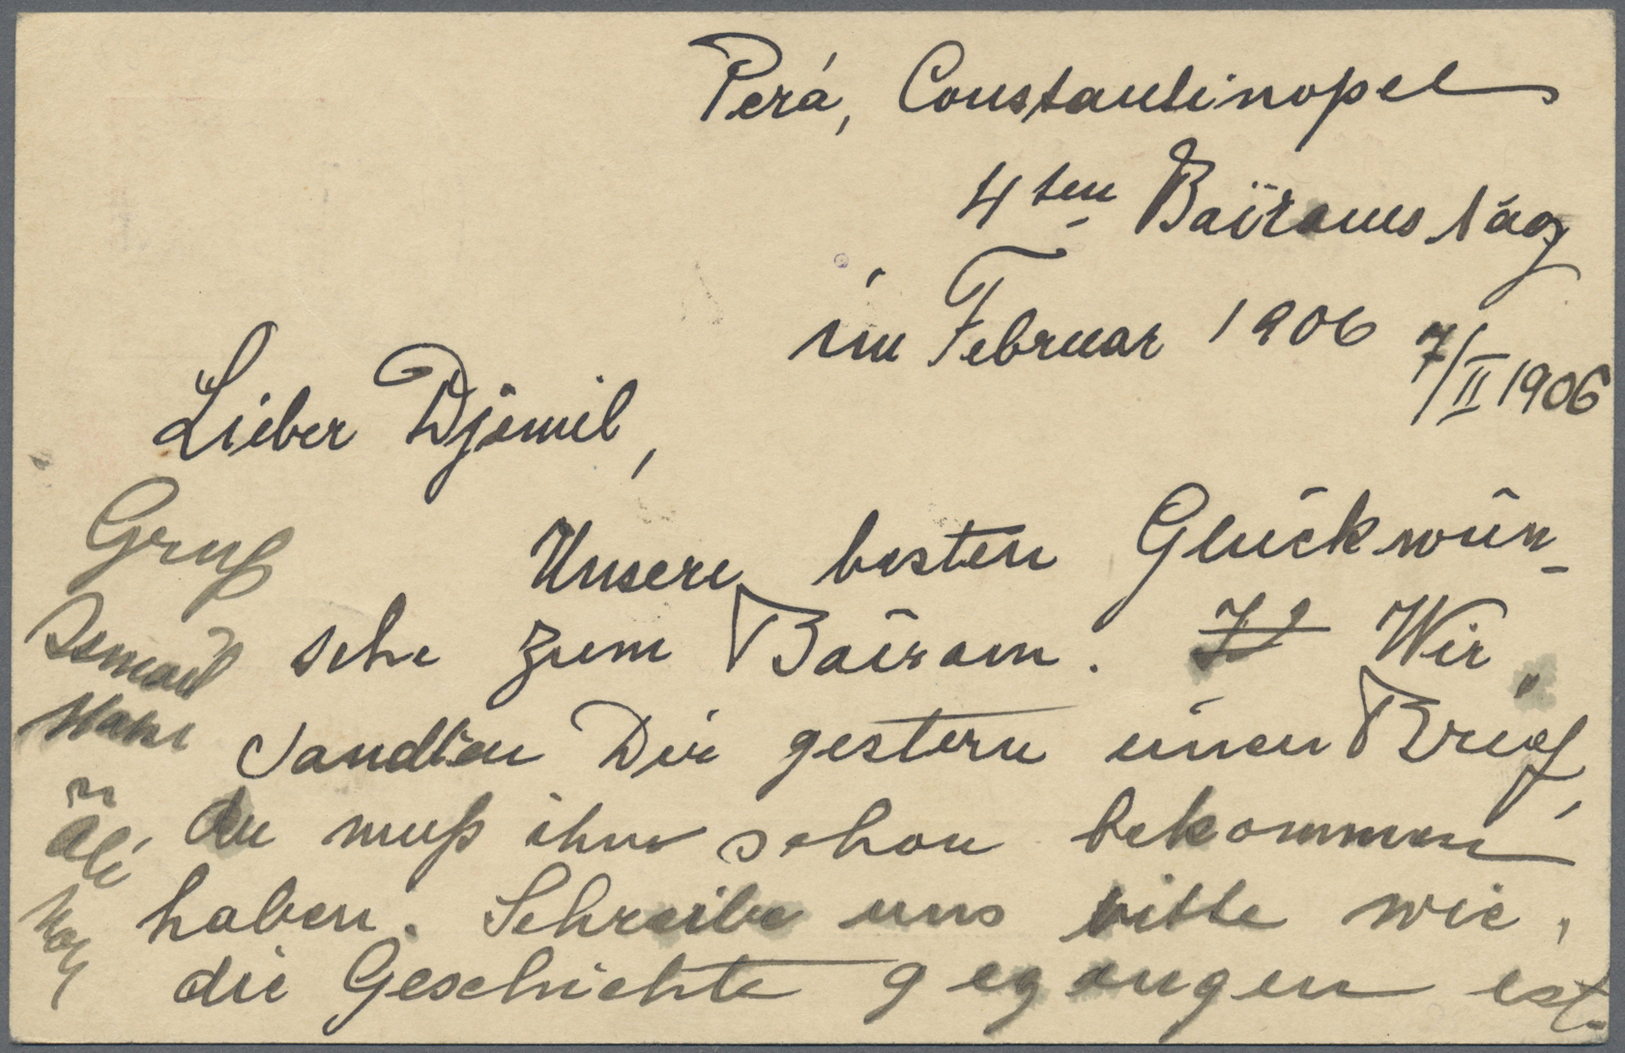 Perá, Constantinopel
4ten Baïrams tag
im Februar 1906 7/II 1906
Lieber Djémil,
Unsere besten Glückwün-
sche zum Baïram. Wir
sandten Dir gestern einen Brief,
du muß ihn schon bekommen
haben. Schreibe uns bitte wie
die Geschichte gegangen ist.
Gruß
Ismail
Hakı
Ali